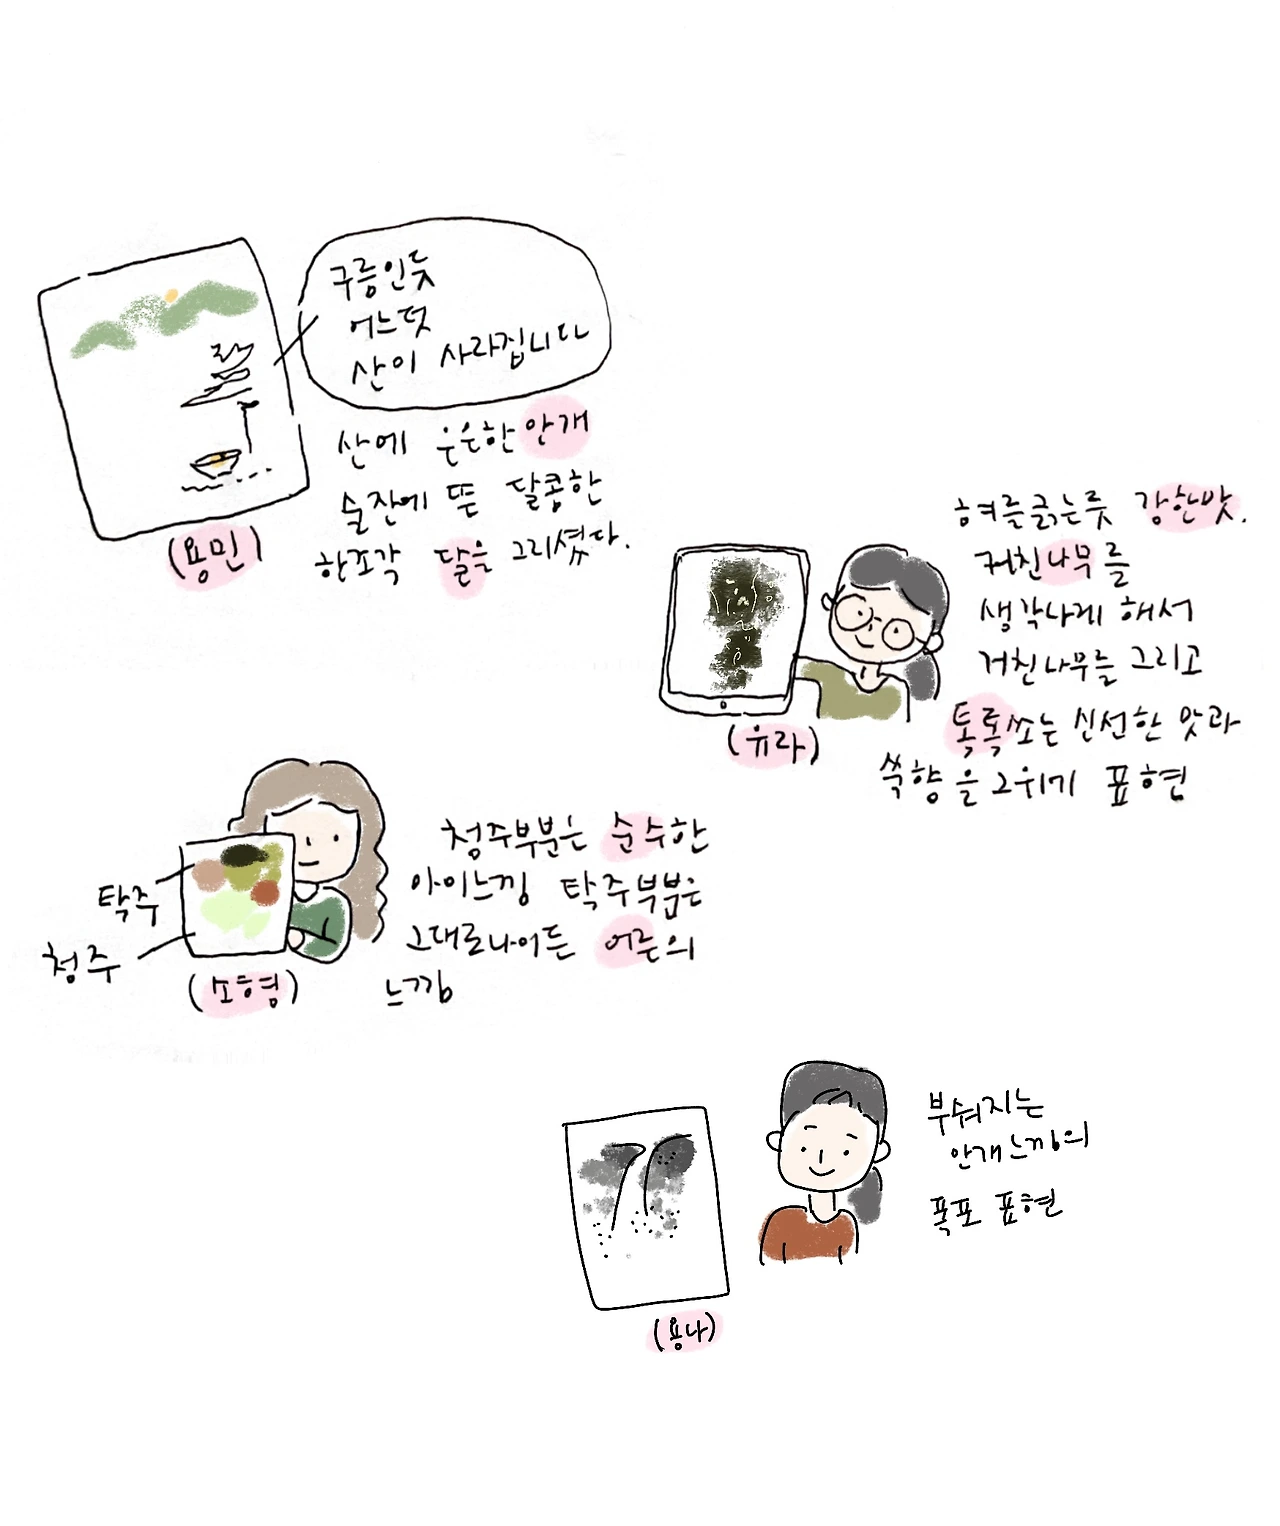 구릉인듯
어느덧
산이 사라집니다
산에 은은한 안개
술잔에 뜬 달콤한
한조각 달을 그리셨다.
(용민)
혀를긁는듯 강한맛.
거친나무를
생각나게 해서
거친나무를 그리고
톡톡쏘는 신선한 맛과
쑥향을 그위기 표현
(유라)
청주부분은 순수한
아이느낌 탁주부분은
그대로나이든 어른의
느낌
탁주
청주
(소형)
부숴지는
안개느낌의
폭포 표현
(용나)